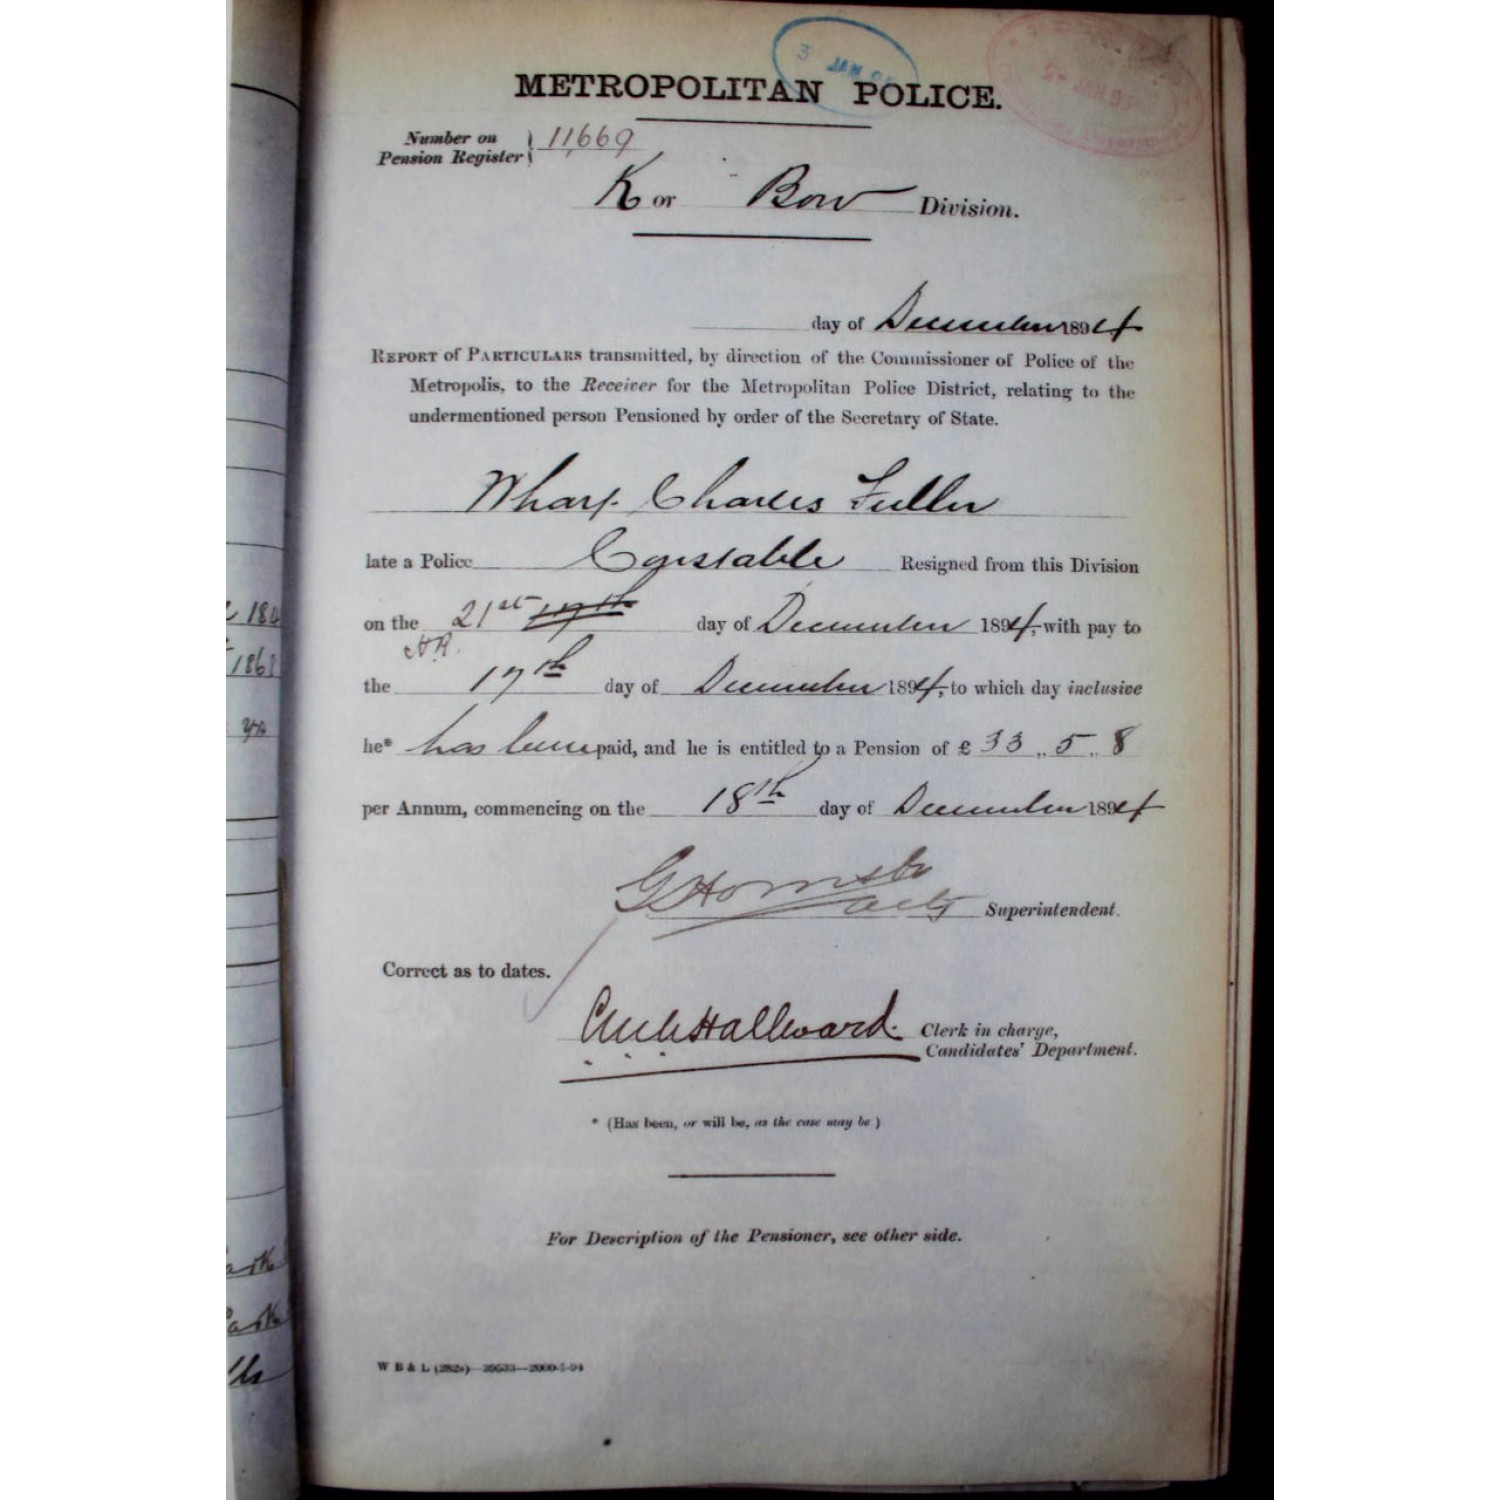 3 JAN
2- JAN 95
METROPOLITAN POLICE.
Number on Pension Register } 11,669
K or Bow Division.
day of December 1894
REPORT of PARTICULARS transmitted, by direction of the Commissioner of Police of the
Metropolis, to the Receiver for the Metropolitan Police District, relating to the
undermentioned person Pensioned by order of the Secretary of State.
Wharf. Charles Fuller
late a Police Constable Resigned from this Division
on the 21st 17th day of December 1894, with pay to
the 17th day of December 1894, to which day inclusive
he* has been paid, and he is entitled to a Pension of £ 33 ,, 5 ,, 8
per Annum, commencing on the 18th day of December 1894
Superintendent.
Correct as to dates.
Hallward. Clerk in charge,
Candidates' Department.
* (Has been, or will be, as the case may be)
For Description of the Pensioner, see other side.
W B & L
184
1862